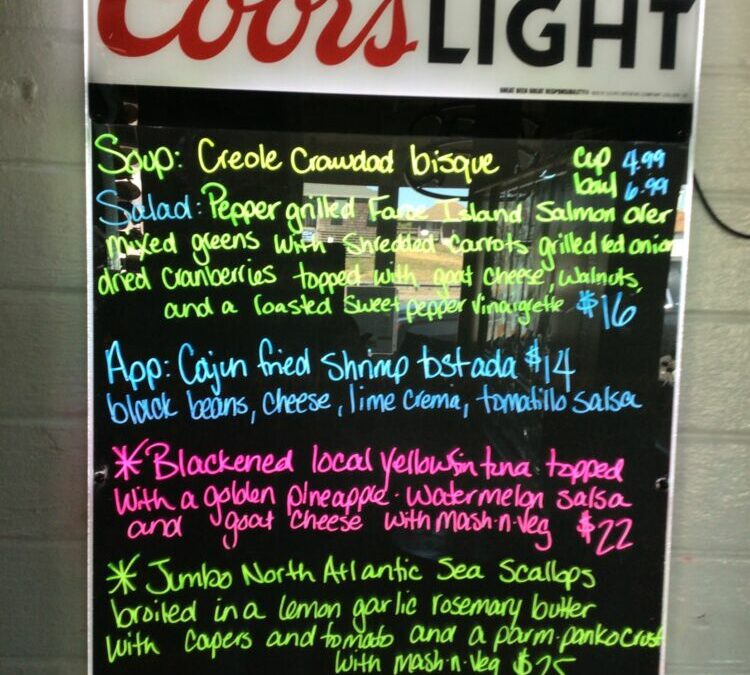 Coors LIGHT
GREAT BEER GREAT RESPONSIBILITY®
Soup: Creole Crawdad bisque cup 4.99
bowl 6.99
Salad: Pepper grilled Faroe Island Salmon over
mixed greens with shredded carrots grilled red onion
dried cranberries topped with goat cheese, walnuts,
and a roasted sweet pepper vinaigrette $16
App: Cajun fried Shrimp tostada $14
black beans, cheese, lime crema, tomatillo salsa
* Blackened local yellowfin tuna topped
with a golden pineapple-watermelon salsa
and goat cheese with mash-n-veg $22
* Jumbo North Atlantic Sea Scallops
broiled in a lemon garlic rosemary butter
with capers and tomato and a parm-panko crust
with mash-n-veg $25